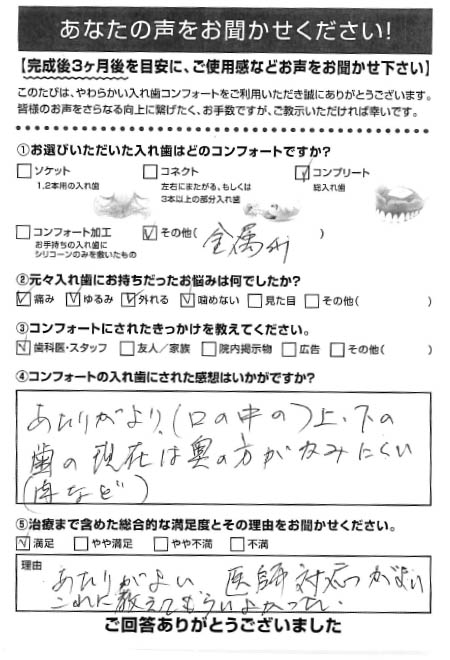 あなたの声をお聞かせください!
【完成後3ヶ月後を目安に、ご使用感などお声をお聞かせ下さい】
このたびは、やわらかい入れ歯コンフォートをご利用いただき誠にありがとうございます。
皆様のお声をさらなる向上に繋げたく、お手数ですが、ご教示いただければ幸いです。
①お選びいただいた入れ歯はどのコンフォートですか?
□ソケット □コネクト ☑コンプリート
1,2本用の入れ歯 左右にまたがる、もしくは 総入れ歯
3本以上の部分入れ歯
□コンフォート加工 ☑その他( 金属 )
お手持ちの入れ歯に
シリコーンのみを敷いたもの
②元々入れ歯にお持ちだったお悩みは何でしたか?
☑痛み ☑ゆるみ ☑外れる ☑噛めない □見た目 □その他( )
③コンフォートにされたきっかけを教えてください。
☑歯科医・スタッフ □友人/家族 □院内掲示物 □広告 □その他( )
④コンフォートの入れ歯にされた感想はいかがですか?
あたりがよい、(口の中の)上・下の
歯の現在は奥の方がかみにくい
(肉など)
⑤治療まで含めた総合的な満足度とその理由をお聞かせください。
☑満足 □やや満足 □やや不満 □不満
理由
あたりがよい 医師対応がよい
教えてもらいよかった.
ご回答ありがとうございました